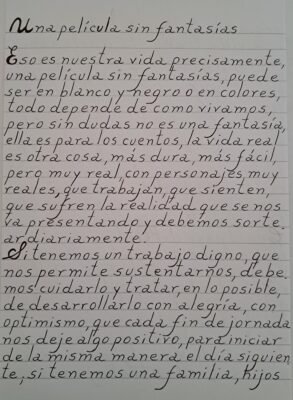 Una película sin fantasías
Eso es nuestra vida precisamente,
una película sin fantasías, puede
ser en blanco y negro o en colores,
todo depende de como vivamos,
pero sin dudas no es una fantasía,
ella es para los cuentos, la vida real
es otra cosa, más dura, más fácil,
pero muy real, con personajes muy
reales, que trabajan, que sienten,
que sufren la realidad que se nos
va presentando y debemos sorte-
ar diariamente.
Si tenemos un trabajo digno, que
nos permite sustentarnos, debe-
mos cuidarlo y tratar, en lo posible,
de desarrollarlo con alegría, con
optimismo, que cada fin de jornada
nos deje algo positivo, para iniciar
de la misma manera el día siguien-
te, si tenemos una familia, hijos